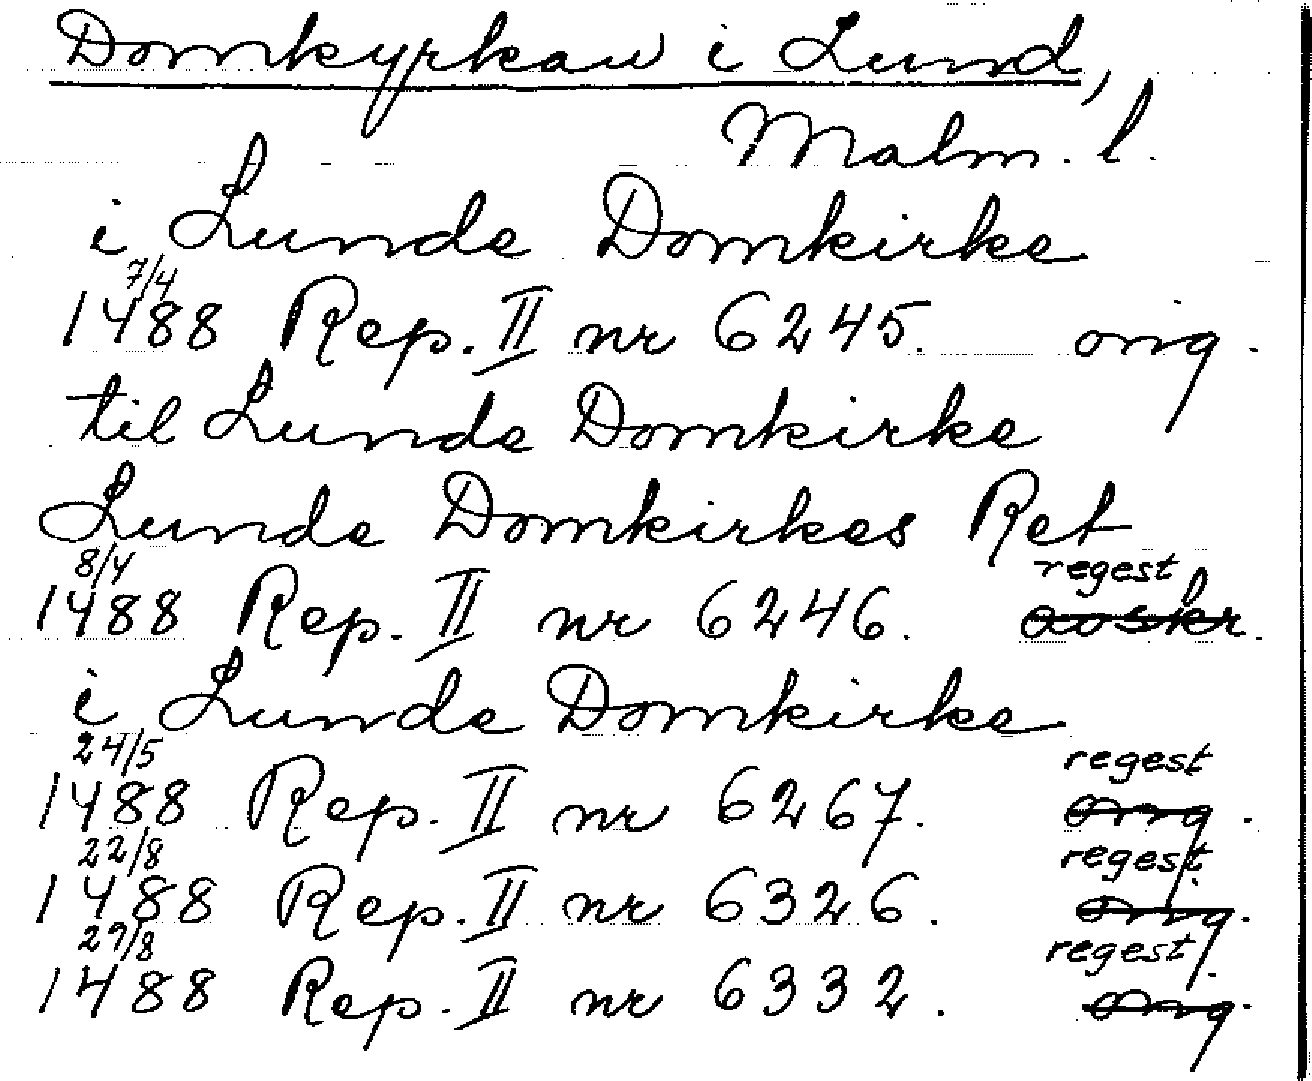 Domkyrkan i Lund,
Malm. l.
i Lunde Domkirke
7/4
1488 Rep. II nr 6245. orig.
til Lunde Domkirke
Lunde Domkirkes Ret
8/4 regest
1488 Rep. II nr 6246. avskr.
i Lunde Domkirke
24/5 regest
1488 Rep. II nr 6267. orig.
22/8 regest
1488 Rep. II nr 6326. orig.
29/8 regest
1488 Rep. II nr 6332. orig.